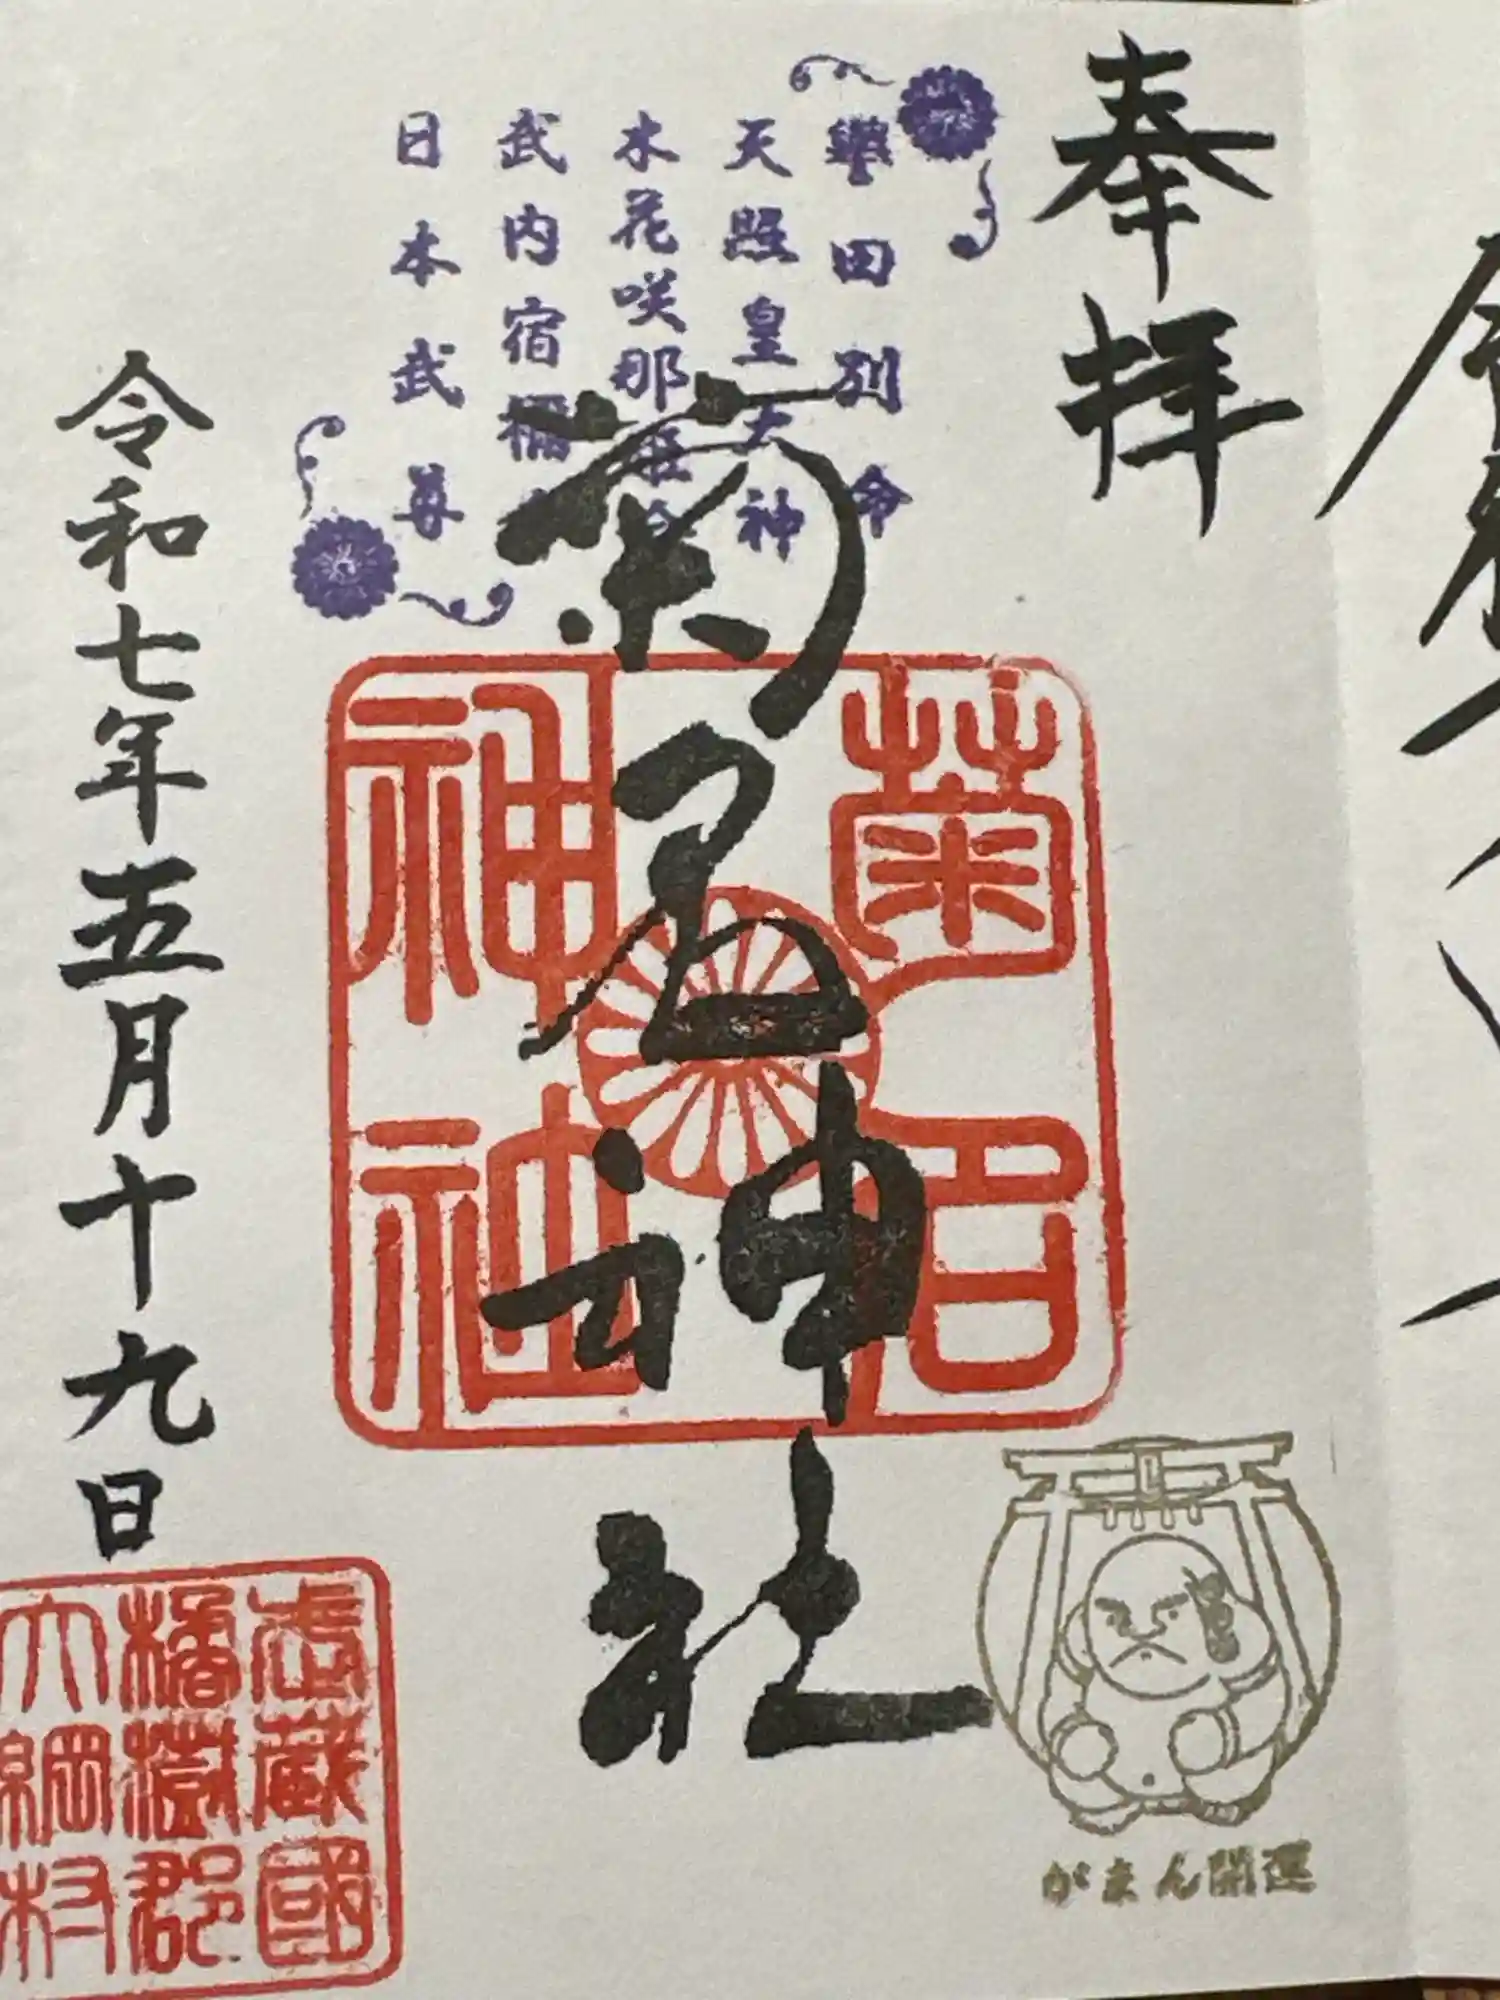 奉拝
誉田別命
天照皇大神
木花咲那姫命
武内宿禰
日本武尊
菊名神社
菊名
神社
令和七年五月十九日
武蔵國
橘樹郡
大綱村
がまん開運